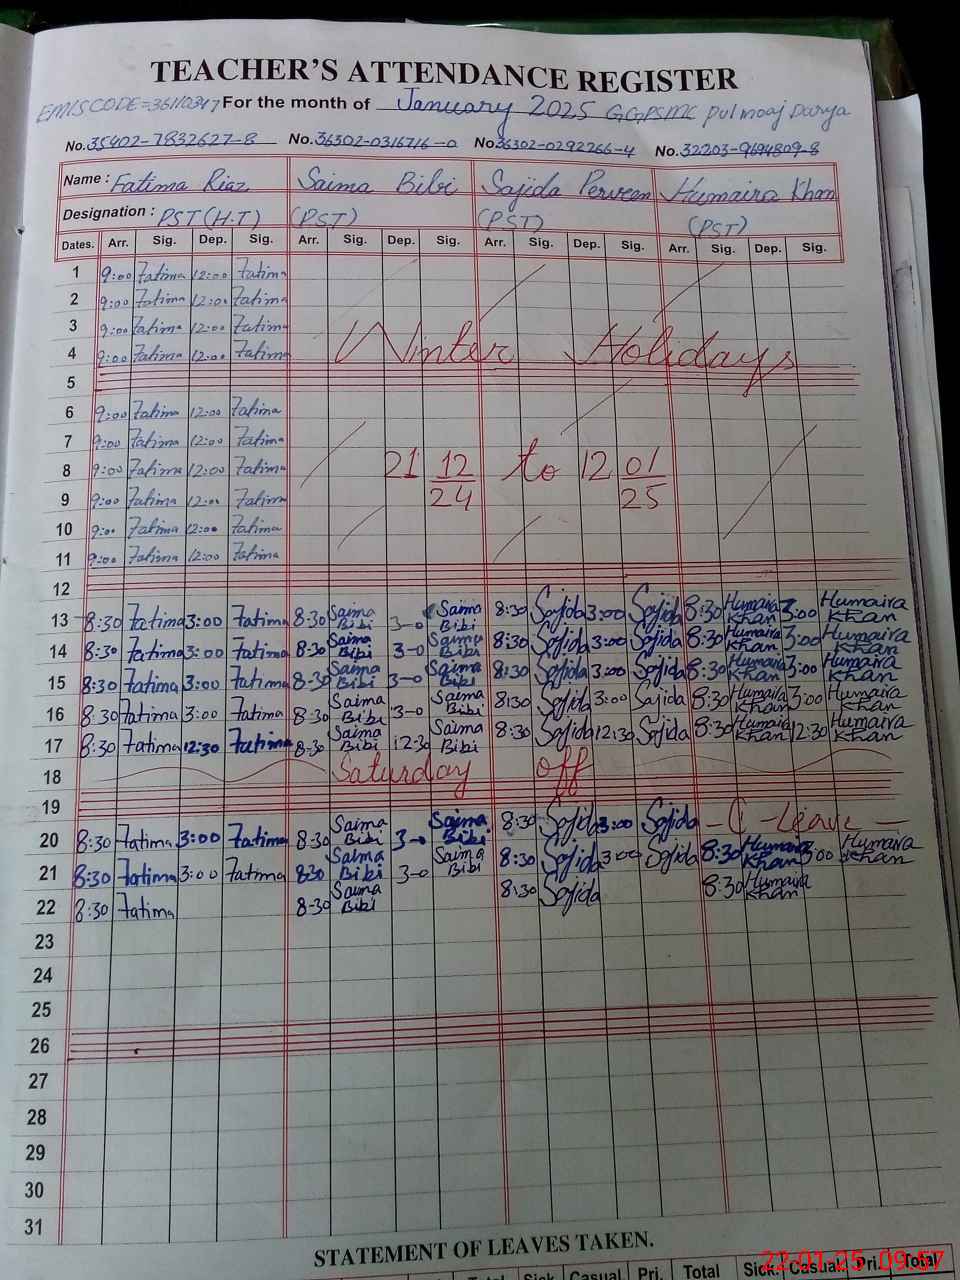 TEACHER'S ATTENDANCE REGISTER
EMIS CODE=36110347 For the month of January 2025 GGPSMC pul moaj Darya
No. 35402-7832627-8 No. 36302-0316716-0 No. 36302-0292266-4 No. 32203-9694809-8
Name: Fatima Riaz Saima Bibi Sajida Perveen Humaira Khan
Designation: PST(H.T) (PST) (PST) (PST)
Dates. Arr. Sig. Dep. Sig. Arr. Sig. Dep. Sig. Arr. Sig. Dep. Sig. Arr. Sig. Dep. Sig.
1 9:00 Fatima 12:00 Fatima
2 9:00 Fatima 12:00 Fatima
3 9:00 Fatima 12:00 Fatima
4 9:00 Fatima 12:00 Fatima Winter Holidays
5
6 9:00 Fatima 12:00 Fatima
7 9:00 Fatima 12:00 Fatima
8 9:00 Fatima 12:00 Fatima 21 12/24 to 12 01/25
9 9:00 Fatima 12:00 Fatima
10 9:00 Fatima 12:00 Fatima
11 9:00 Fatima 12:00 Fatima
12
13 8:30 Fatima 3:00 Fatima 8:30 Saima Bibi 3-0 Saima Bibi 8:30 Sajida 3:00 Sajida 8:30 Humaira Khan 3:00 Humaira Khan
14 8:30 Fatima 3:00 Fatima 8-30 Saima Bibi 3-0 Saima Bibi 8:30 Sajida 3:00 Sajida 8:30 Humaira Khan 3:00 Humaira Khan
15 8:30 Fatima 3:00 Fatima 8-30 Saima Bibi 3-0 Saima Bibi 8:30 Sajida 3:00 Sajida 8:30 Humaira Khan 3:00 Humaira Khan
16 8:30 Fatima 3:00 Fatima 8-30 Saima Bibi 3-0 Saima Bibi 8:30 Sajida 3:00 Sajida 8:30 Humaira Khan 3:00 Humaira Khan
17 8:30 Fatima 12:30 Fatima 8-30 Saima Bibi 12:30 Saima Bibi 8:30 Sajida 12:30 Sajida 8:30 Humaira Khan 12:30 Humaira Khan
18 Saturday off
19
20 8:30 Fatima 3:00 Fatima 8-30 Saima Bibi 3-0 Saima Bibi 8:30 Sajida 3:00 Sajida - C - Leave -
21 8:30 Fatima 3:00 Fatima 8-30 Saima Bibi 3-0 Saima Bibi 8:30 Sajida 3:00 Sajida 8:30 Humaira Khan 3:00 Humaira Khan
22 8:30 Fatima 8-30 Saima Bibi 8:30 Sajida 8:30 Humaira Khan
23
24
25
26
27
28
29
30
31
STATEMENT OF LEAVES TAKEN.
Total Sick Casual Pri. Total Sick Casual Pri. Total
22-01-25 09:57